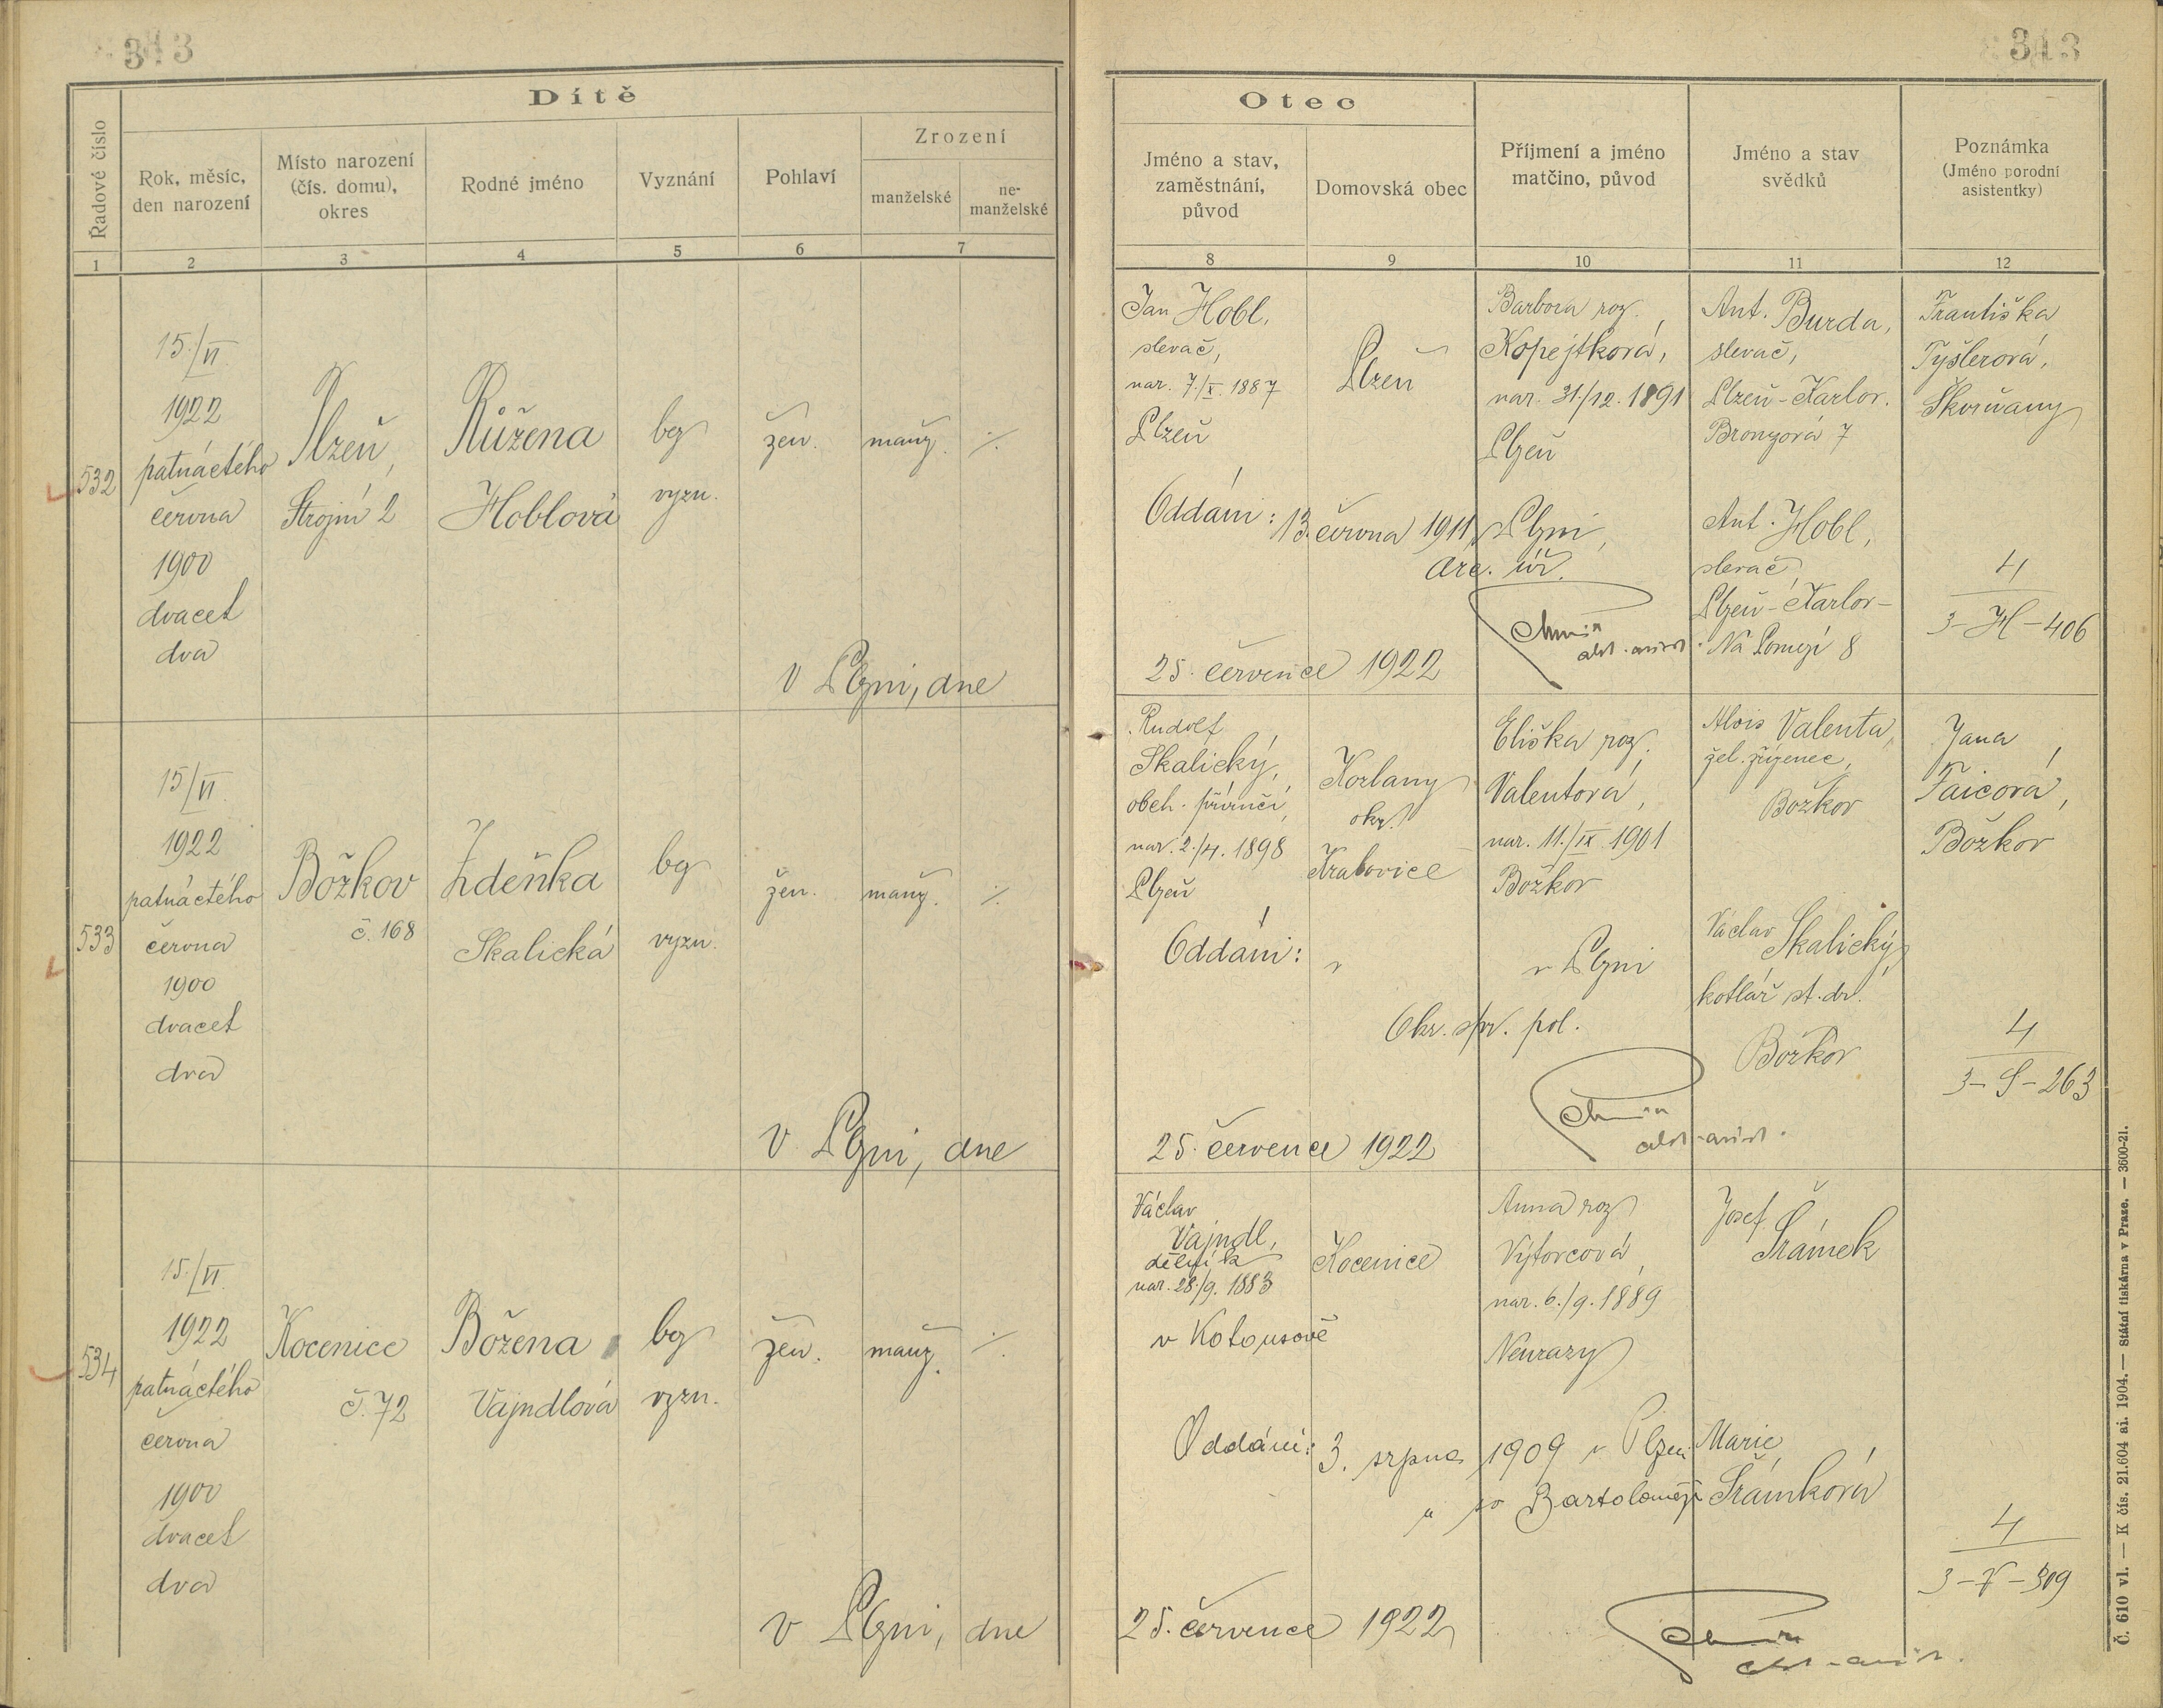 313
Dítě
Řadové číslo
Rok, měsíc,
den narození
Místo narození
(čís. domu),
okres
Rodné jméno
Vyznání
Pohlaví
Zrození
manželské
ne-
manželské
1
2
3
4
5
6
7
532
15./VI.
1922
patnáctého
června
1900
dvacet
dva
Plzeň,
Strojní 2
Růžena
Hoblová
bez
vyzn.
žen.
manž.
·/.
V Plzni, dne
533
15/VI.
1922
patnáctého
června
1900
dvacet
dva
Božkov
č. 168
Zdeňka
Skalická
bez
vyzn.
žen.
manž.
·/.
V Plzni, dne
534
15./VI.
1922
patnáctého
června
1900
dvacet
dva
Kocenice
č. 72
Božena
Vajndlová
bez
vyzn.
žen.
manž.
·/.
v Plzni, dne
313
Otec
Jméno a stav,
zaměstnání,
původ
Domovská obec
Příjmení a jméno
matčino, původ
Jméno a stav
svědků
Poznámka
(Jméno porodní
asistentky)
8
9
10
11
12
Jan Hobl,
slevač,
nar. 7./X. 1887
Plzeň
Plzeň
Barbora roz.
Kopejtková,
nar. 31./12. 1891
Plzeň
Ant. Burda,
slevač,
Plzeň-Karlov.
Bronzová 7
Františka
Tyšlerová,
Škvrňany
Oddáni: 13. června 1911 v Plzni,
arc. úř.
Ant. Hobl,
slevač,
Plzeň-Karlov-
Na Pomezí 8
4
3-H-406
25. července 1922
Rudolf
Skalický,
obch. příručí,
nar. 2./4. 1898
Plzeň
Kozlany
okr.
Kralovice
Eliška roz.
Valentová,
nar. 11./IX. 1901
Božkov
Alois Valenta,
žel. zřízenec,
Božkov
Jana
Faicová,
Božkov
Oddáni: v
v Plzni
Okr. spr. pol.
Václav Skalický,
kotlář st. dr.
Božkov
4
3-S-263
25. července 1922
Václav
Vajndl,
dělník
nar. 28./9. 1883
v Kotousově
Kocenice
Anna roz.
Výtorcová
nar. 6./9. 1889
Neurazy
Josef
Šrámek
Oddáni: 3. srpna 1909 v Plzni
u sv Bartoloměje
Marie
Šrámková
4
3-V-309
25. července 1922
Č. 610 vl. — K čís. 21.604 ai. 1904. — Státní tiskárna v Praze. — 3600-21.